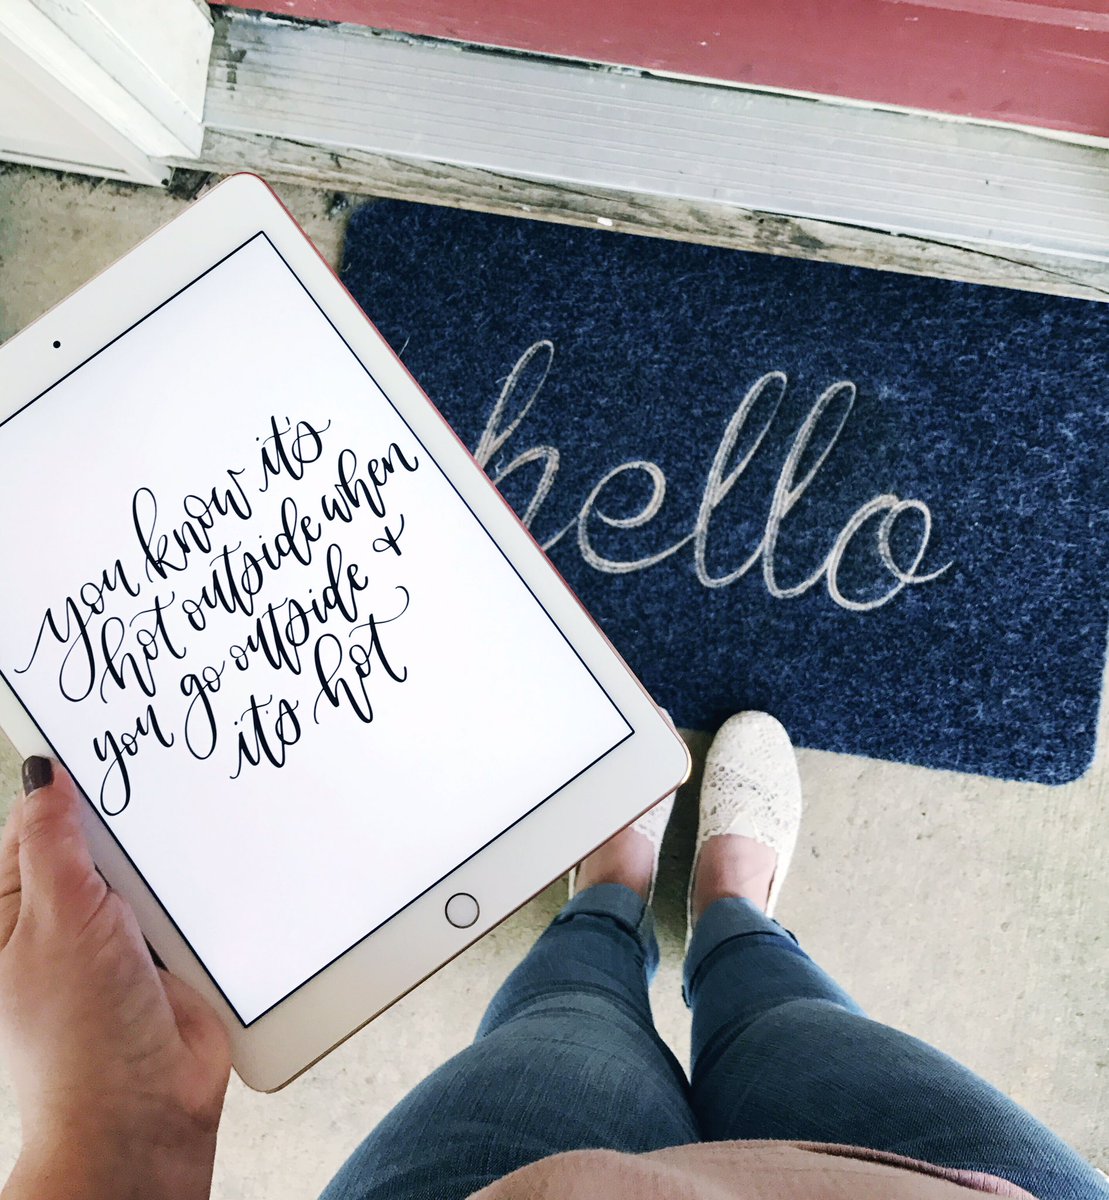 you know it's
hot outside when
you go outside +
it's hot
hello